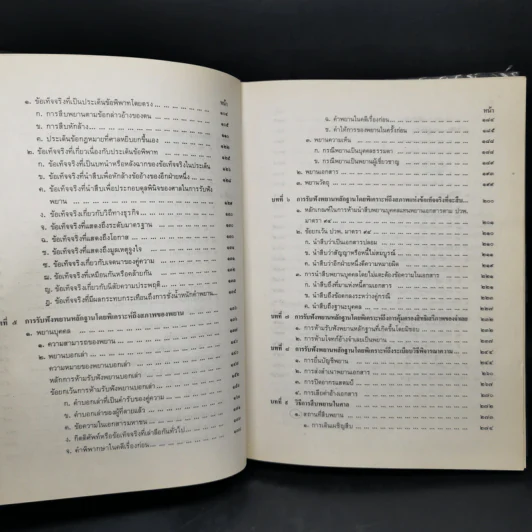 หน้า
๑. ข้อเท็จจริงที่เป็นประเด็นข้อพิพาทโดยตรง
ก. การสืบพยานตามข้อกล่าวอ้างของตน
ข. การสืบหักล้าง
ค. ประเด็นข้อกฎหมายที่ศาลหยิบยกขึ้นเอง
๒. ข้อเท็จจริงที่เกี่ยวเนื่องกับประเด็นข้อพิพาท
ก. ข้อเท็จจริงที่เป็นบทนำหรือหลังฉากของข้อเท็จจริงในประเด็น
ข. ข้อเท็จจริงที่นำสืบเพื่อหักล้างข้ออ้างของอีกฝ่ายหนึ่ง
ค. ข้อเท็จจริงที่นำสืบเพื่อประกอบดุลพินิจของศาลในการรับฟัง
พยาน
ง. ข้อเท็จจริงเกี่ยวกับวิถีทางธุรกิจ
จ. ข้อเท็จจริงที่แสดงถึงระดับมาตรฐาน
ฉ. ข้อเท็จจริงที่แสดงถึงโอกาส
ช. ข้อเท็จจริงที่แสดงถึงมูลเหตุจูงใจ
ซ. ข้อเท็จจริงเกี่ยวกับเจตนาของคู่ความ
ฌ. ข้อเท็จจริงที่เหมือนกันหรือคล้ายกัน
ญ. ข้อเท็จจริงเกี่ยวกับนิสัยความประพฤติ
ฎ. ข้อเท็จจริงที่มีผลกระทบกระเทือนถึงการชั่งน้ำหนักคำพยาน
บทที่ ๕ การรับฟังพยานหลักฐานโดยพิเคราะห์ถึงสภาพของพยาน
๑. พยานบุคคล
๑. ความสามารถของพยาน
๒. พยานบอกเล่า
ความหมายของพยานบอกเล่า
หลักการห้ามรับฟังพยานบอกเล่า
ข้อยกเว้นการห้ามรับฟังพยานบอกเล่า
ก. คำบอกเล่าที่เป็นคำรับของคู่ความ
ข. คำบอกเล่าของผู้ที่ตายแล้ว
ค. ข้อความในเอกสารมหาชน
ง. กิตติศัพท์หรือข้อเท็จจริงที่เล่าลือกันทั่วไป
จ. คำพิพากษาในคดีเรื่องก่อน
หน้า
ฉ. คำพยานในคดีเรื่องก่อน
ช. คำให้การของพยานในครั้งก่อน
๓. พยานความเห็น
ก. กรณีพยานเป็นบุคคลธรรมดา
ข. กรณีพยานเป็นผู้เชี่ยวชาญ
๒. พยานเอกสาร
๓. พยานวัตถุ
บทที่ ๖ การรับฟังพยานหลักฐานโดยพิเคราะห์ถึงสภาพแห่งข้อเท็จจริงที่จะสืบ
๑. หลักเกณฑ์ในการห้ามนำสืบพยานบุคคลแทนพยานเอกสารตาม ปวพ.
มาตรา ๙๔
๒. ข้อยกเว้น ปวพ. มาตรา ๙๔
ก. นำสืบว่าเป็นเอกสารปลอม
ข. นำสืบว่าสัญญาหรือหนี้ไม่สมบูรณ์
ค. นำสืบว่าอีกฝ่ายหนึ่งตีความหมายผิด
๓. การนำสืบพยานบุคคลโดยไม่ต้องห้ามข้อความในเอกสาร
ก. นำสืบถึงที่มาแห่งหนี้ตามเอกสาร
ข. นำสืบถึงข้อตกลงระหว่างคู่กรณี
ค. นำสืบถึงฐานะบุคคล
บทที่ ๗ การรับฟังพยานหลักฐานโดยพิเคราะห์ถึงการคุ้มครองสิทธิเสรีภาพของจำเลย
๑. การห้ามรับฟังพยานหลักฐานที่เกิดขึ้นโดยมิชอบ
๒. การห้ามโจทก์อ้างจำเลยเป็นพยาน
บทที่ ๘ การรับฟังพยานหลักฐานโดยพิเคราะห์ถึงระเบียบวิธีพิจารณาความ
๑. การยื่นบัญชีพยาน
๒. การส่งสำเนาพยานเอกสาร
๓. การปิดอากรแสตมป์
๔. การเสียค่าอ้างเอกสาร
บทที่ ๙ วิธีการสืบพยานในศาล
๑. สถานที่สืบพยาน
๑. การเดินเผชิญสืบ